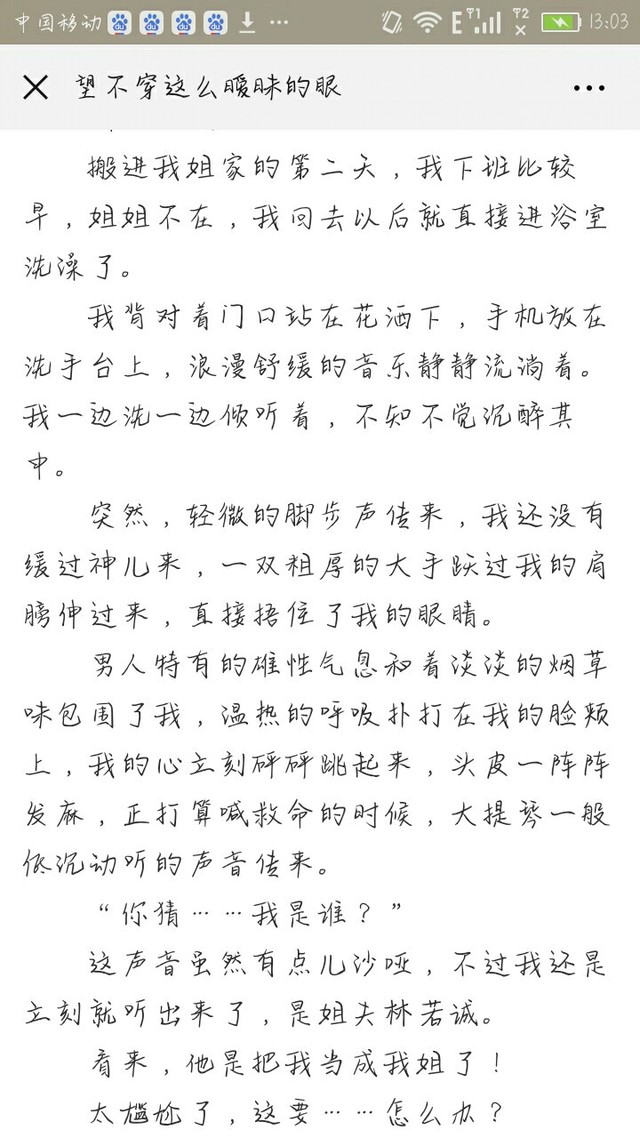 中国移动 du du du du ... E T1 T2 13:03
望不穿这么暧昧的眼 ...
搬进我姐家的第二天，我下班比较
早，姐姐不在，我回去以后就直接进浴室
洗澡了。
我背对着门口站在花洒下，手机放在
洗手台上，浪漫舒缓的音乐静静流淌着。
我一边洗一边倾听着，不知不觉沉醉其
中。
突然，轻微的脚步声传来，我还没有
缓过神儿来，一双粗厚的大手跃过我的肩
膀伸过来，直接捂住了我的眼睛。
男人特有的雄性气息和着淡淡的烟草
味包围了我，温热的呼吸扑打在我的脸颊
上，我的心立刻砰砰跳起来，头皮一阵阵
发麻，正打算喊救命的时候，大提琴一般
低沉动听的声音传来。
“你猜……我是谁？”
这声音虽然有点儿沙哑，不过我还是
立刻就听出来了，是姐夫林若诚。
看来，他是把我当成我姐了！
太尴尬了，这要……怎么办？